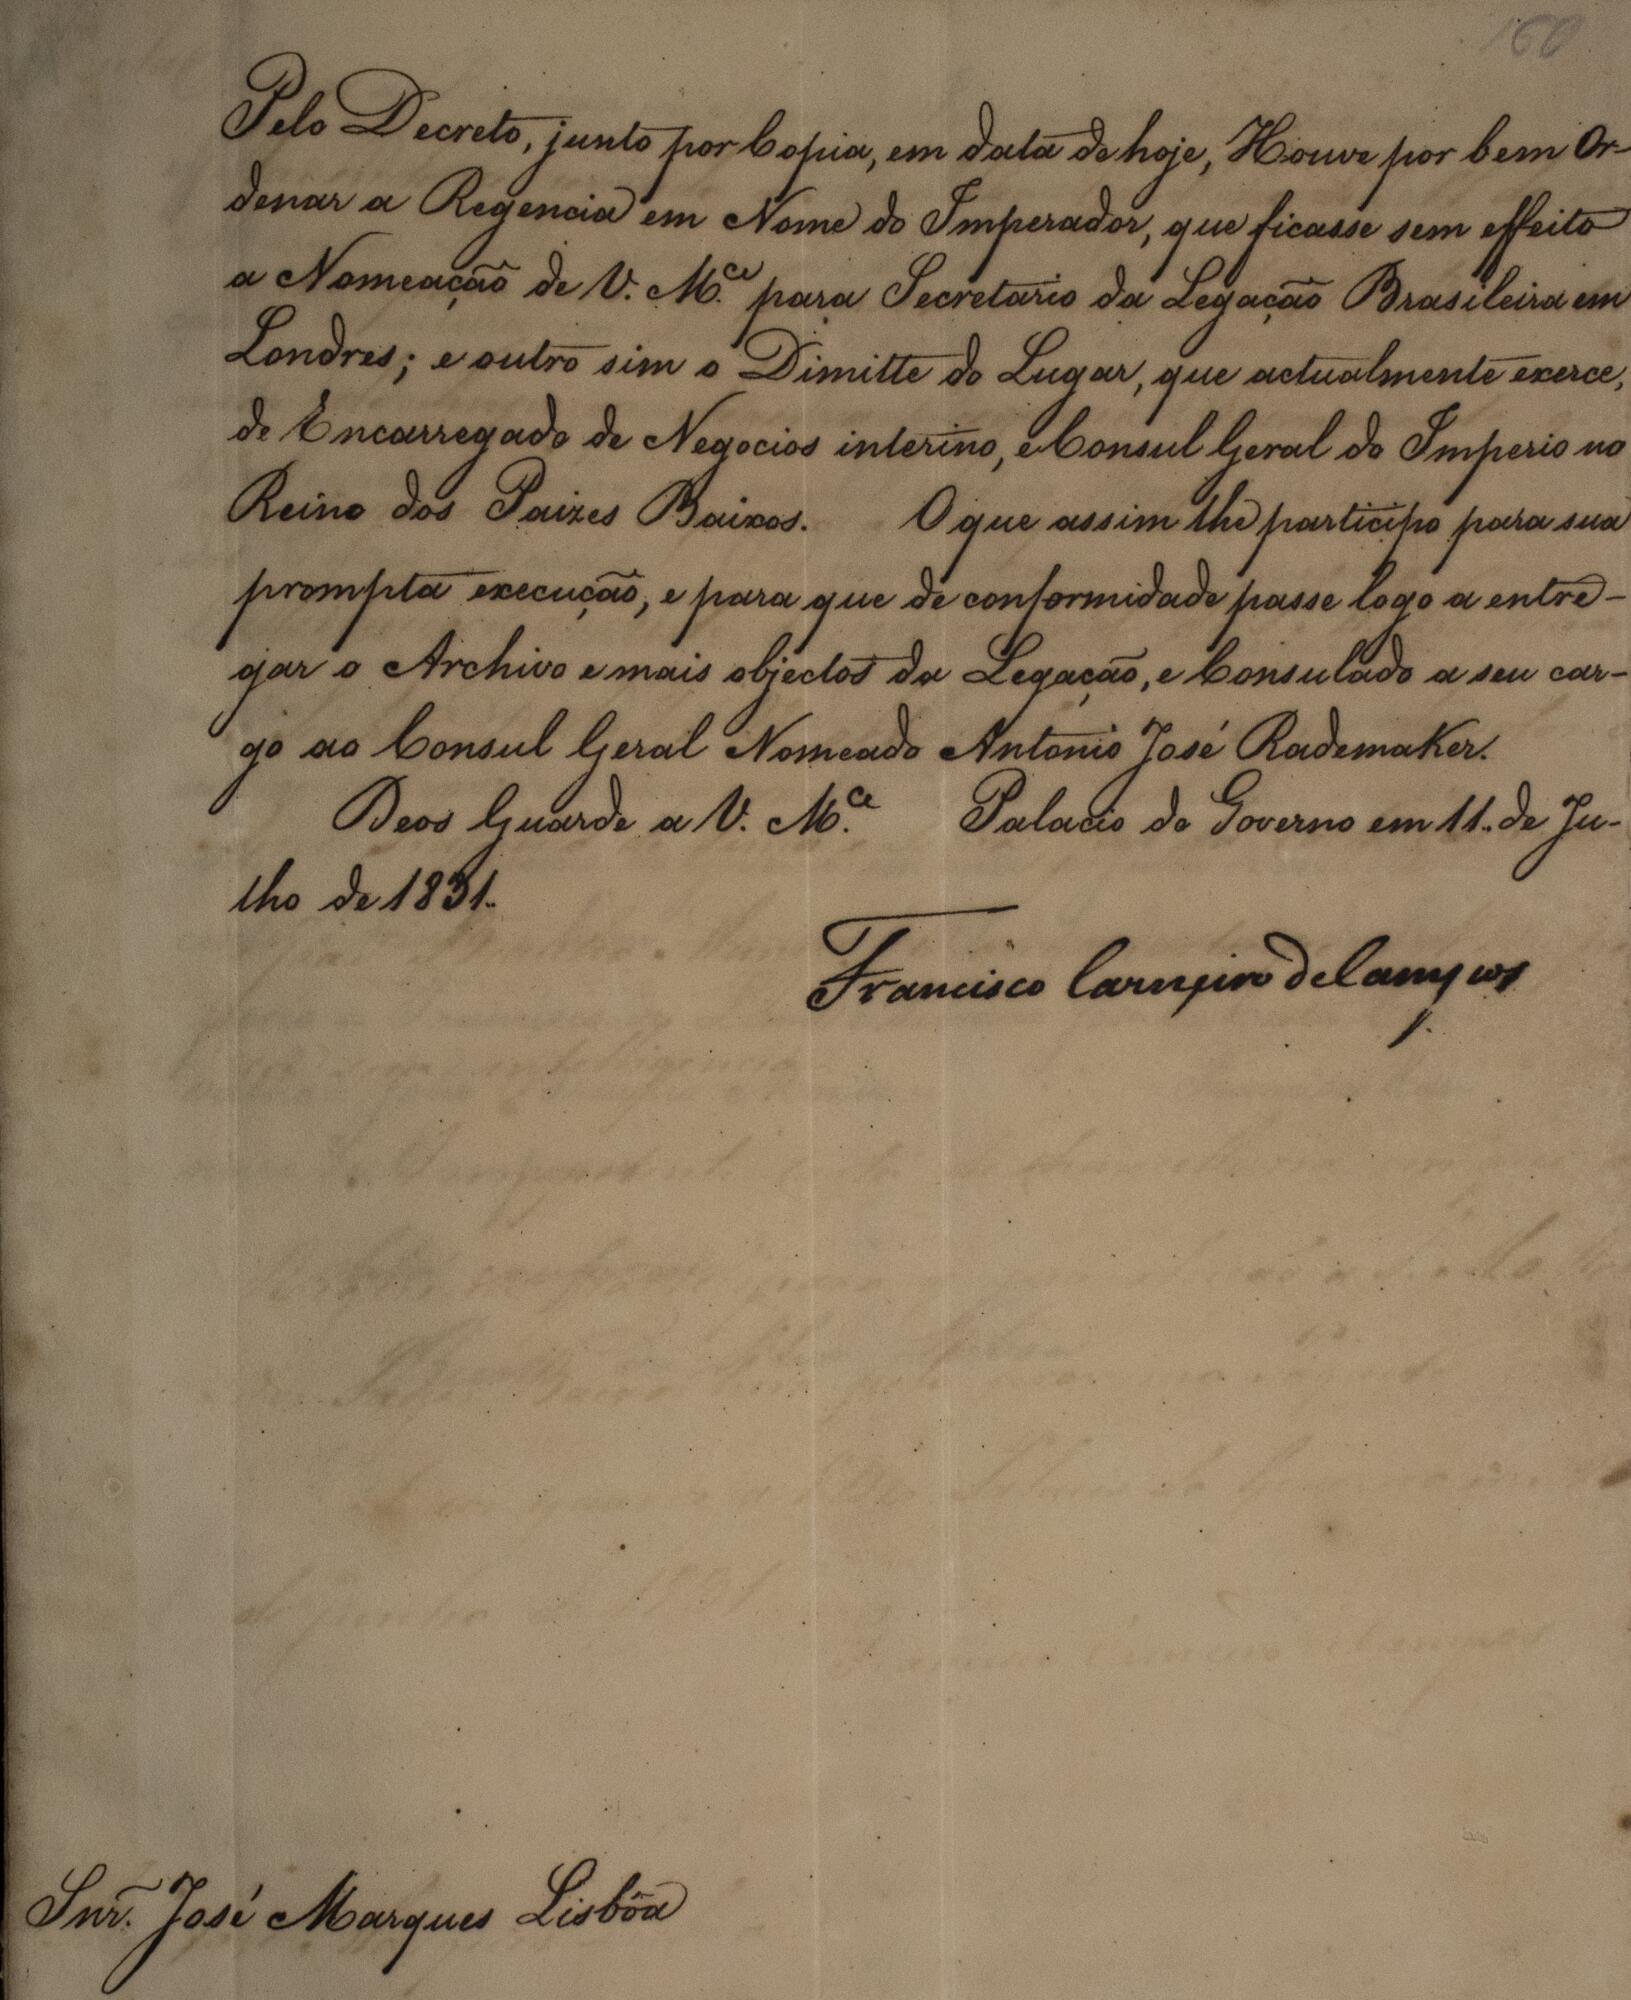 160
Pelo Decreto, junto por Copia, em data de hoje, Houve por bem Or-
denar a Regencia em Nome do Imperador, que ficasse sem effeito
a Nomeação de V. M.ce para Secretario da Legação Brasileira em
Londres; e outro sim o Dimitte do Lugar, que actualmente exerce,
de Encarregado de Negocios interino, e Consul Geral do Imperio no
Reino dos Paizes Baixos. O que assim lhe participo para sua
prompta execução, e para que de conformidade passe logo a entre-
gar o Archivo e mais objectos da Legação, e Consulado a seu car-
go ao Consul Geral Nomeado Antonio José Rademaker.
Deos Guarde a V. M.ce Palacio do Governo em 11. de Ju-
lho de 1831.
Francisco Carneiro de Campos
Snr. José Marques Lisbôa